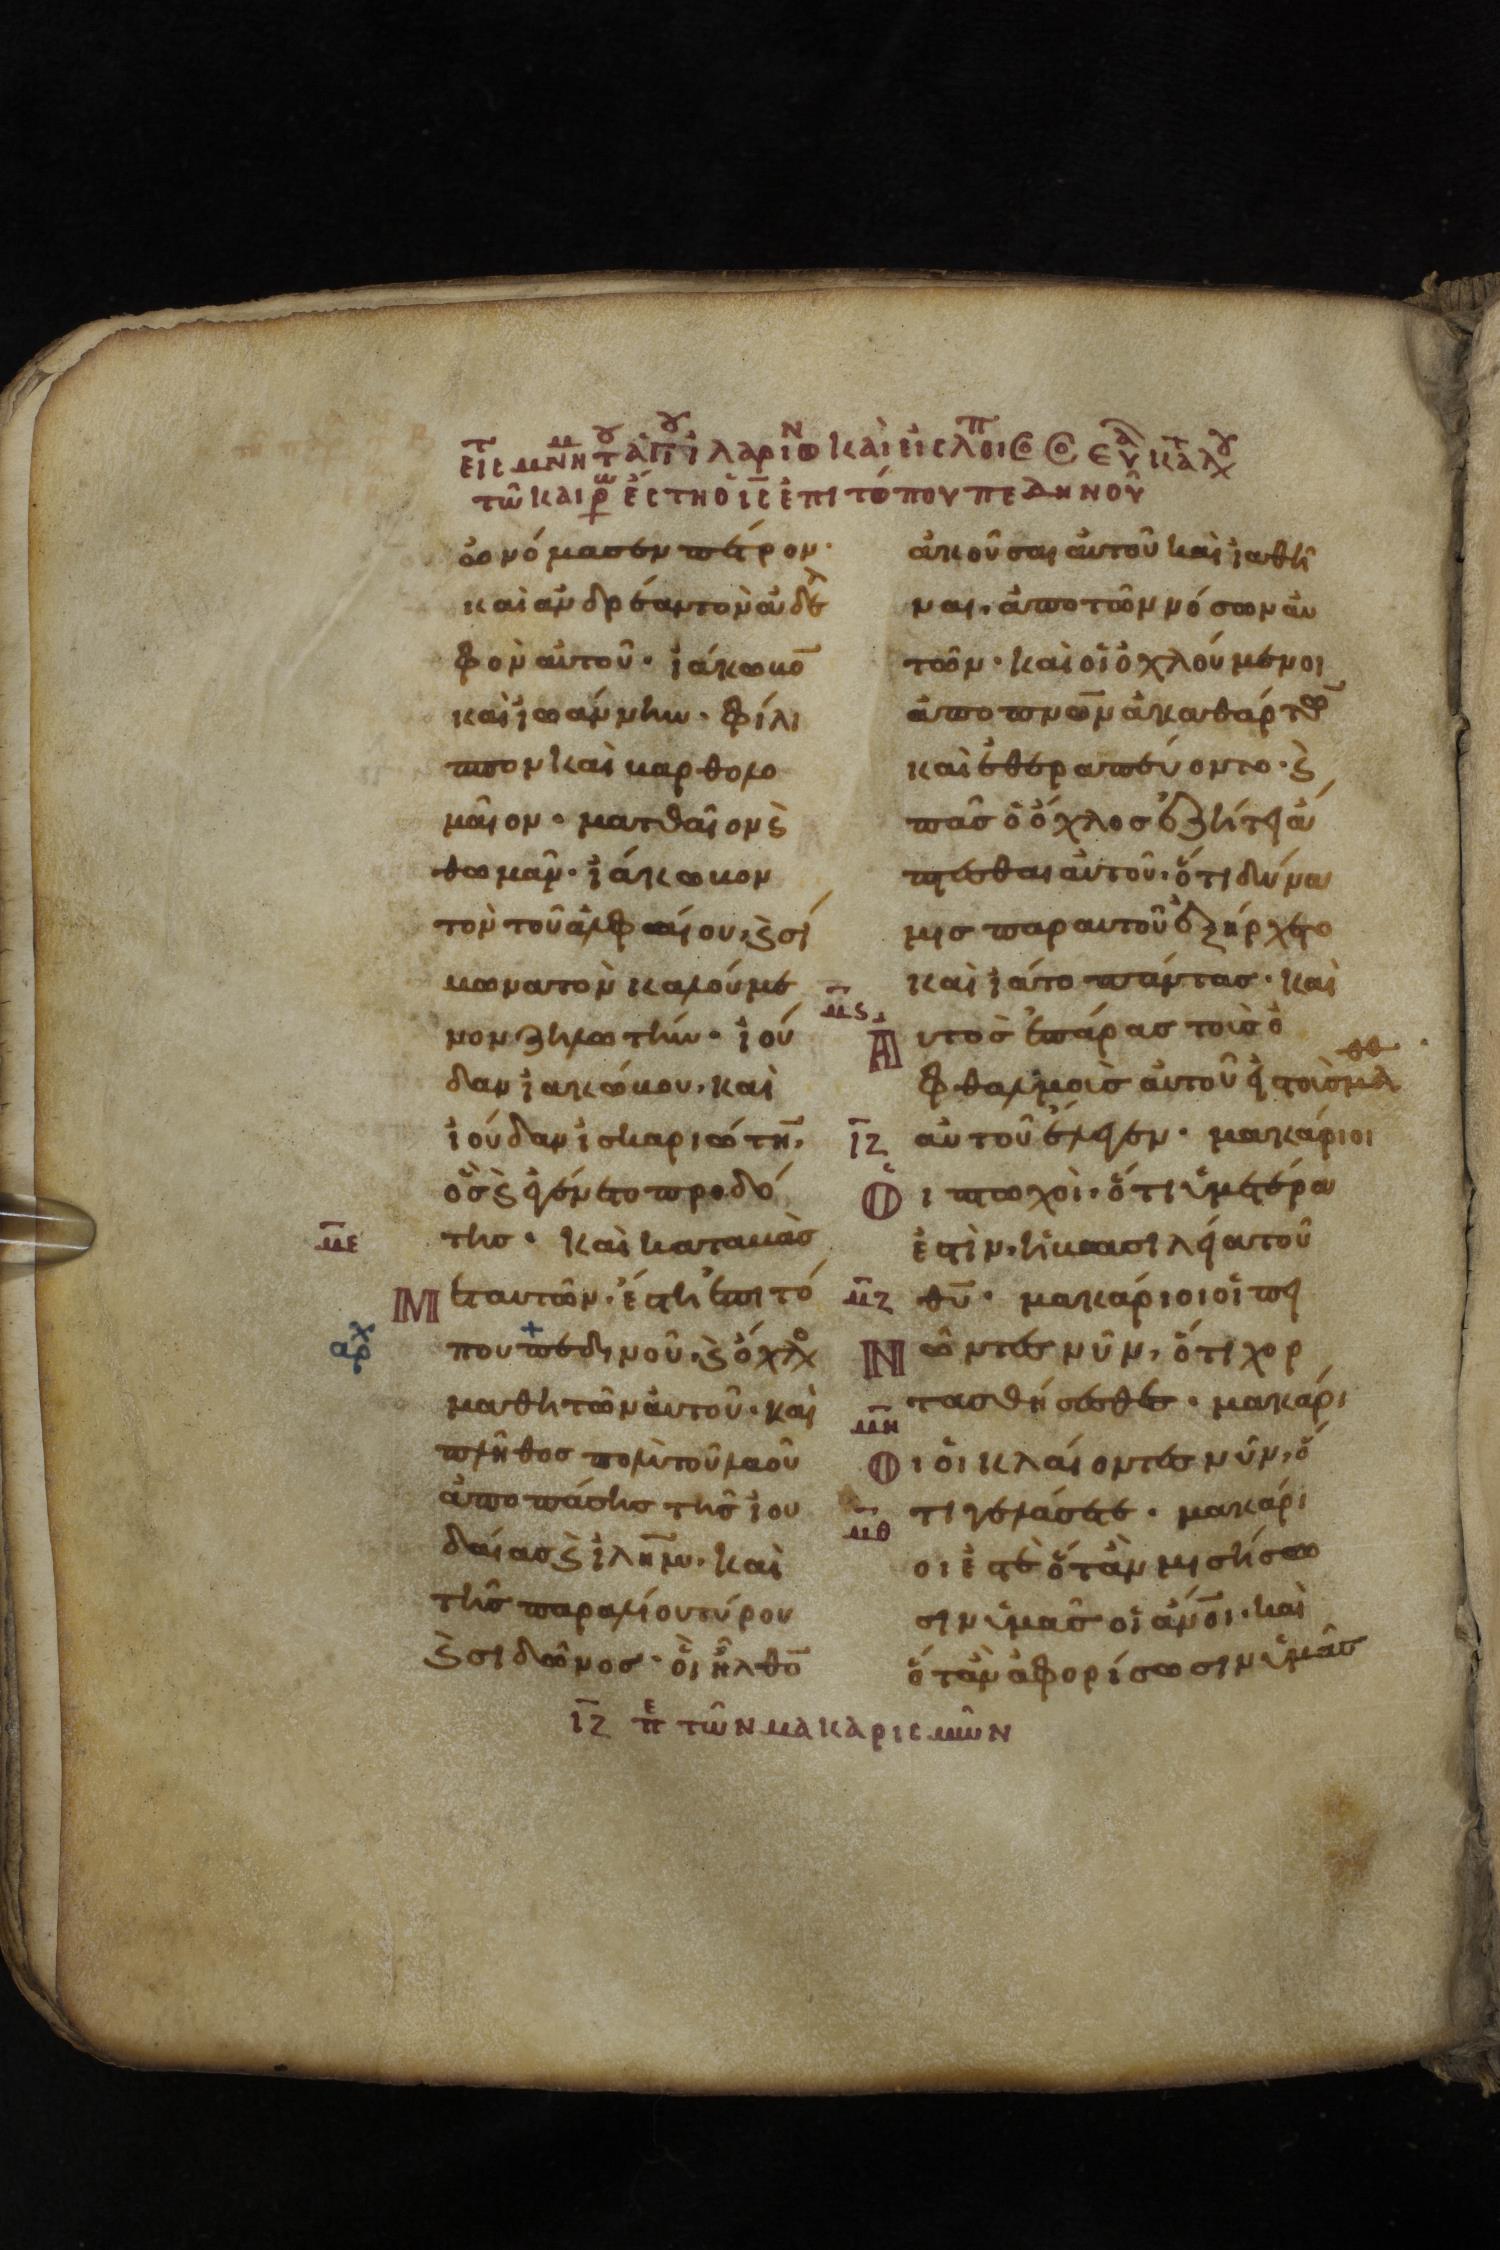 εἰς μνή τ ἁγί ἱλαρίων καὶ εἰς λοιπ εὐα κατ λου
τῶ καιρῶ ἔστη ὁ ις ἐπι τόπου πεδηνοῦ
ὠνόμασεν πέτρον·
καὶ ἀνδρέαν τὸν ἀδελ
φὸν αὐτοῦ· ἰάκωβο̅
καὶ ἰωάννην· φίλι
ππον καὶ βαρθολο
μαῖον· ματθαῖον ϗ
θωμᾶν· ἰάκωβον
τὸν τοῦ ἀλφαίου, ϗ σί
μωνα τὸν καλούμε
νον ζηλωτήν· ἰού
δαν ἰακώβου, καὶ
ἰούδαν ἰσκαριώτη̅,
ὃς ϗ ἐγένετο προδό
της· καὶ καταβὰς
με
Μ ετ αὐτῶν, ἔστη ἐπι τό
αρχ
που πεδινοῦ, ϗ ὄχλος
μαθητῶν αὐτοῦ· καὶ
πλῆθος πολὺ τοῦ λαοῦ
ἀπο πάσης τῆς ἰου
δαίας ϗ ἰλημ, καὶ
τῆς παραλίου τύρου
ϗ σιδῶνος· οἳ ἦλθο̅
ἀκοῦσαι αὐτοῦ καὶ ἰαθῆ
ναι, ἀπο τῶν νόσων αὐ
τῶν· καὶ οἱ ὀχλούμενοι
ἀπο πνων ἀκαθάρτων
καὶ ἐθεραπεύοντο· ϗ
πᾶς ὁ ὄχλος ἐζήτει ἅ
πτεσθαι αὐτοῦ, ὅτι δύνα
μις παρ αυτοῦ ἐξήρχετο
καὶ ἰάτο πάντας· καὶ
μς
Α υτὸς ἐπάρας τοὺς ὀ
φθαλμοὺς αὐτοῦ εἰς τοὺς μαθ
ιζ αὐτοῦ ἔλεγεν· μακάριοι
Ο ἱ πτωχοὶ, ὅτι ὑμετέρα
ἐστὶν, ἡ βασιλεία τοῦ
μζ θυ· μακάριοι οἱ πει
Ν ῶντες νῦν, ὅτι χορ
τασθήσεσθε· μακάρι
μη
Ο ι οἱ κλαίοντες νῦν, ὅ
τι γελάσετε· μακάρι
μθ
οι ἐστὲ ὅτὰν μισήσω
σιν ὑμᾶς οἱ ἀνοι, καὶ
ὅτὰν ἀφορίσωσιν ὑμᾶς
ιζ πε τῶν μακαρισμῶν